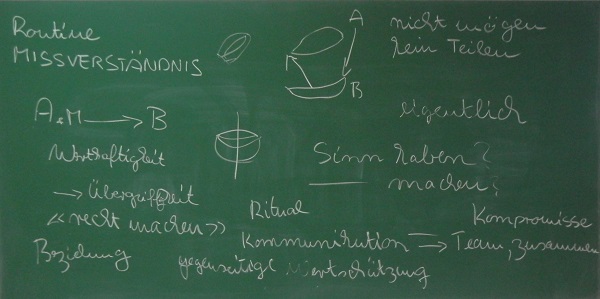 Routine
MISSVERSTÄNDNIS
A
B
nicht mögen
kein Teilen
A + M → B
eigentlich
Sinn haben?
machen?
→ Übergriffigkeit
« recht machen »
Ritual
Kompromisse
Beziehung
Kommunikation → Team, zusammen
gegenseitige Wertschätzung